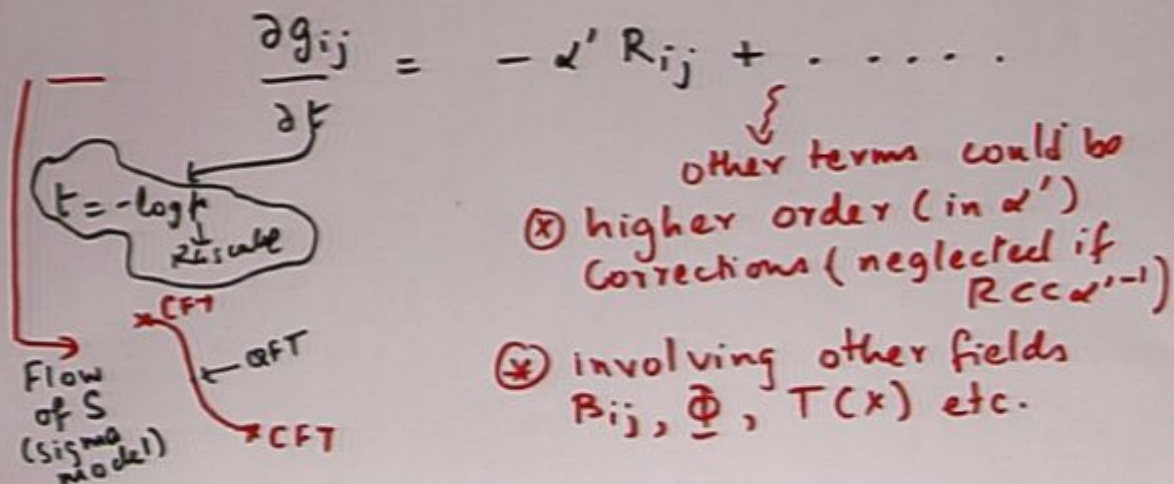 ∂g_ij / ∂t = - α' R_ij + . . . . . .
t = -log μ
RG scale
other terms could be
⊛ higher order (in α')
corrections (neglected if
R << α'^-1)
⊛ involving other fields
B_ij, Φ, T(x) etc.
CFT
QFT
CFT
Flow
of S
(Sigma
model)